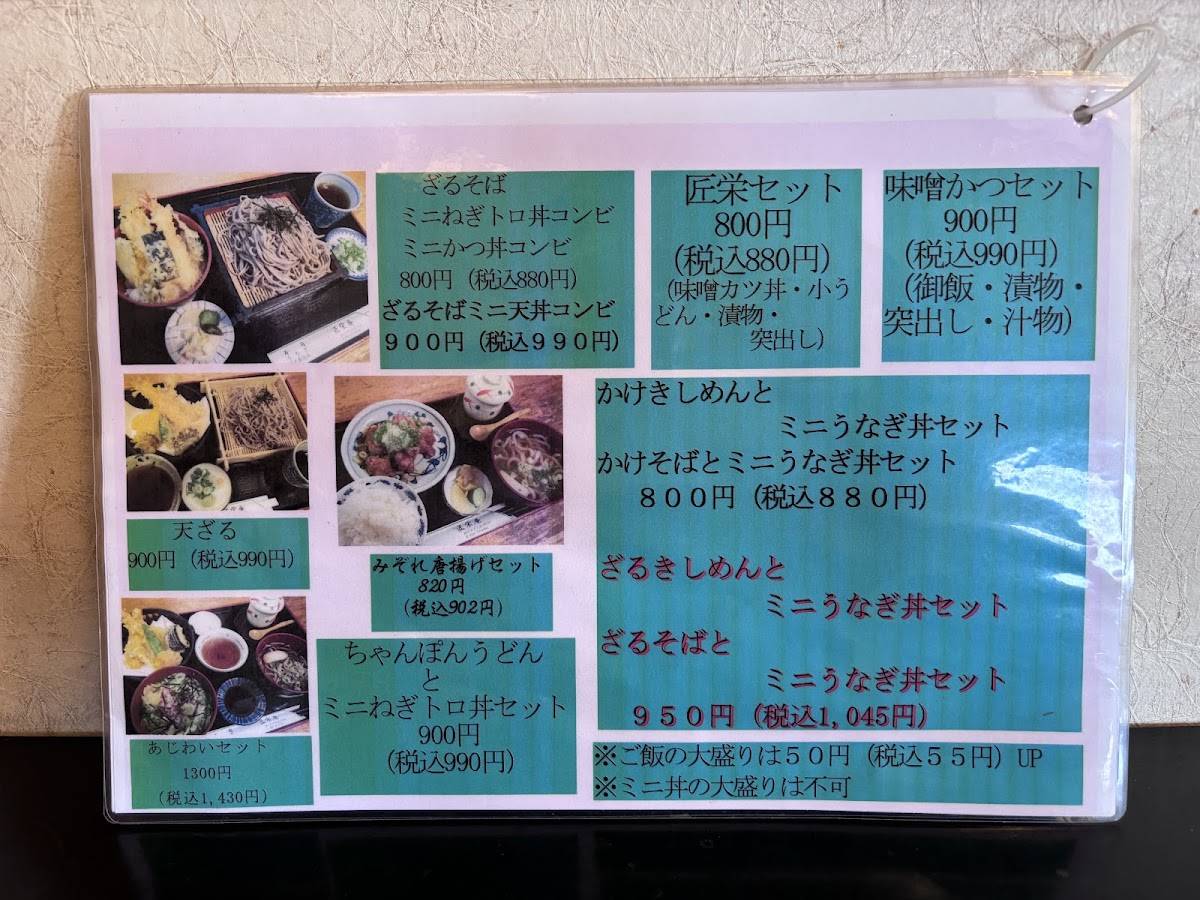 ざるそば
ミニねぎトロ丼コンビ
ミニかつ丼コンビ
800円（税込880円）
ざるそばミニ天丼コンビ
９００円（税込９９０円）
匠栄セット
800円
（税込880円）
（味噌カツ丼・小う
どん・漬物・
突出し）
味噌かつセット
900円
（税込990円）
（御飯・漬物・
突出し・汁物）
天ざる
900円（税込990円）
みぞれ唐揚げセット
820円
（税込902円）
かけきしめんと
ミニうなぎ丼セット
かけそばとミニうなぎ丼セット
８００円（税込８８０円）
ざるきしめんと
ミニうなぎ丼セット
ざるそばと
ミニうなぎ丼セット
９５０円（税込1,045円）
あじわいセット
1300円
（税込1,430円）
ちゃんぽんうどん
と
ミニねぎトロ丼セット
900円
（税込990円）
※ご飯の大盛りは５０円（税込５５円）UP
※ミニ丼の大盛りは不可